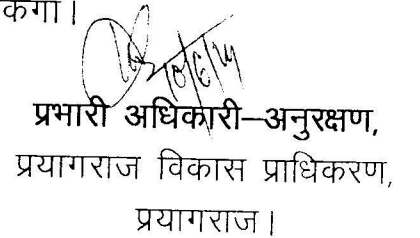 प्रभारी अधिकारी–अनुरक्षण,
प्रयागराज विकास प्राधिकरण,
प्रयागराज।